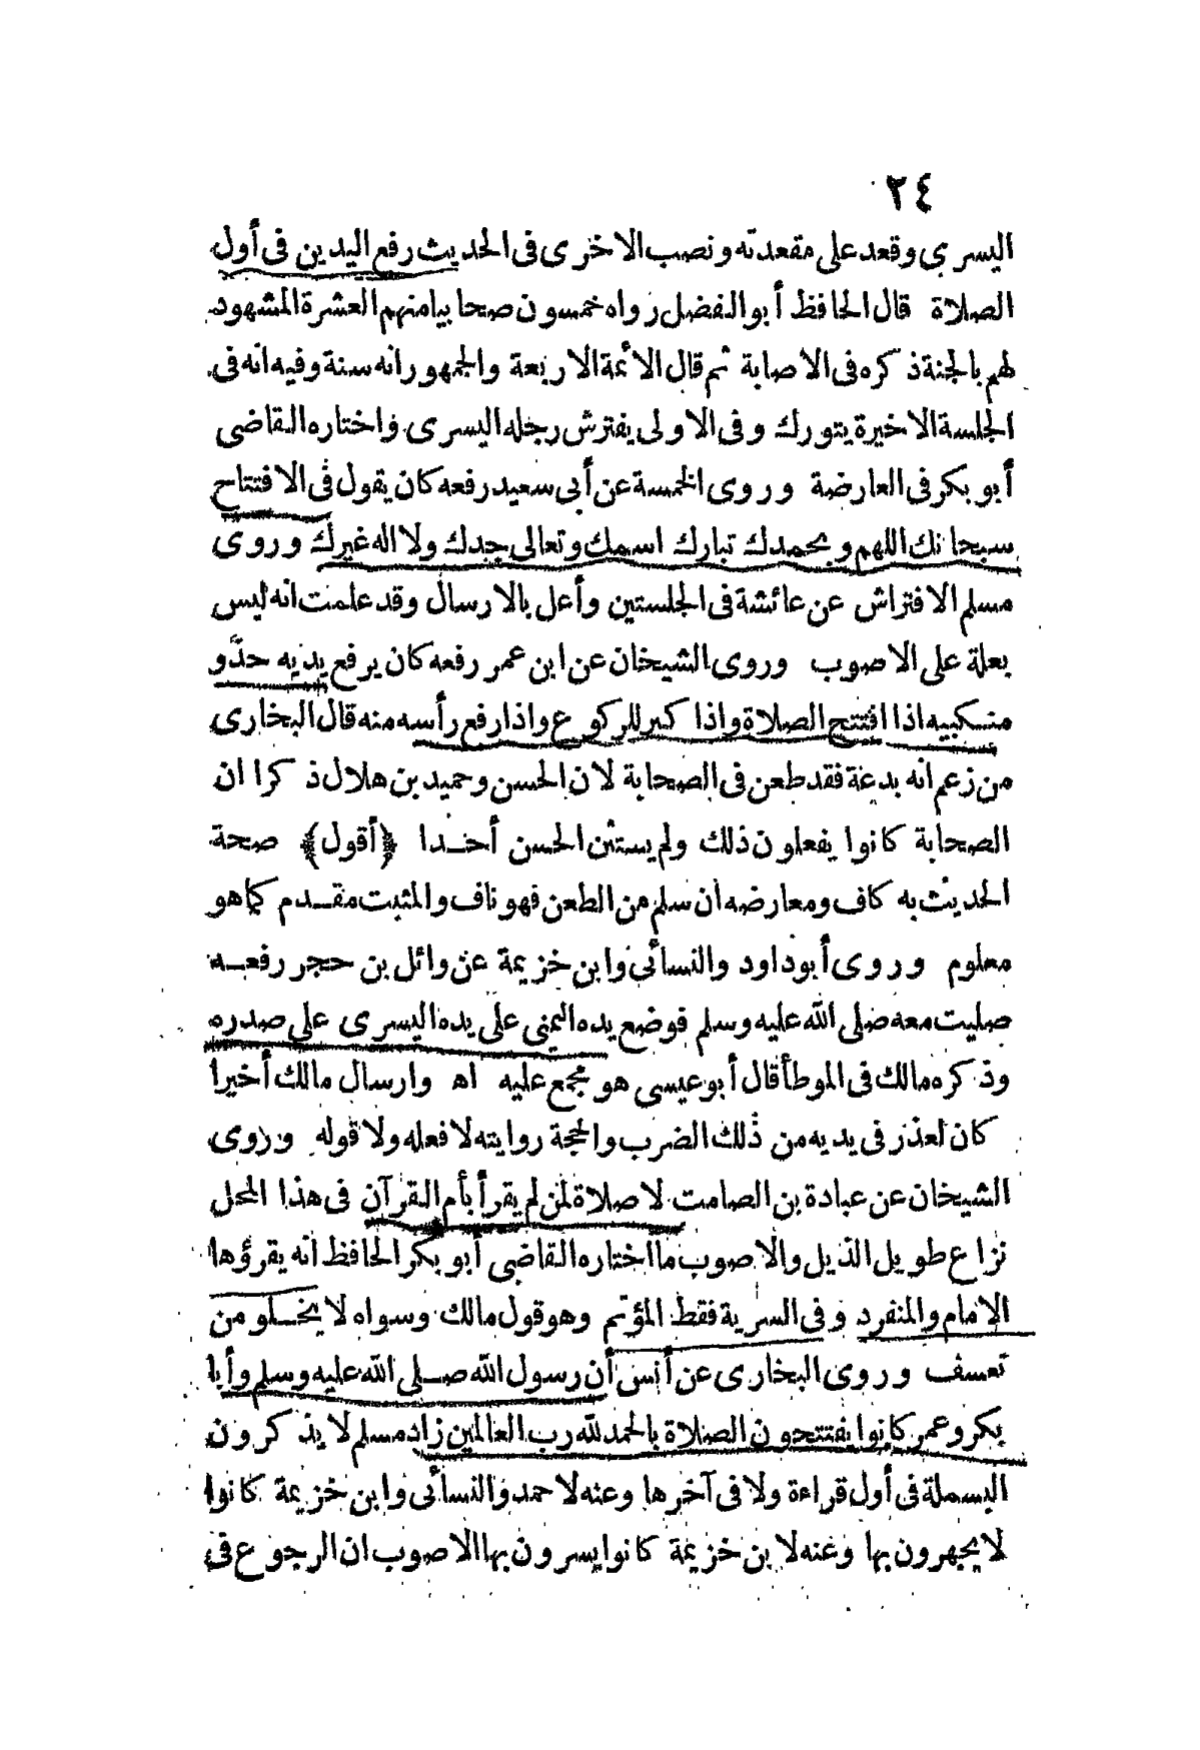 ٢٤
اليسرى وقعد على مقعدته ونصب الاخرى فى الحديث رفع اليدين فى أول
الصلاة قال الحافظ أبو الفضل رواه خمسون صحابيا منهم العشرة المشهود
لهم بالجنة ذكره فى الاصابة ثم قال الائمة الاربعة والجمهور انه سنة وفيه انه فى
الجلسة الاخيرة يتورك وفى الاولى يفترش رجله اليسرى واختاره القاضى
أبو بكر فى العارضة وروى الخمسة عن أبى سعيد رفعه كان يقول فى الافتتاح
سبحانك اللهم وبحمدك تبارك اسمك وتعالى جدك ولا اله غيرك وروى
مسلم الافتراش عن عائشة فى الجلستين وأعل بالارسال وقد علمت انه ليس
بعلة على الاصوب وروى الشيخان عن ابن عمر رفعه كان يرفع يديه حذو
منكبيه اذا افتتح الصلاة واذا كبر للركوع واذا رفع رأسه منه قال البخارى
من زعم انه بدعة فقد طعن فى الصحابة لان الحسن وحميد بن هلال ذكرا ان
الصحابة كانوا يفعلون ذلك ولم يستثن الحسن أحدا ﴿أقول﴾ صحة
الحديث به كاف ومعارضه ان سلم من الطعن فهو ناف والمثبت مقدم كما هو
معلوم وروى أبو داود والنسائى وابن خزيمة عن وائل بن حجر رفعه
صليت معه صلى الله عليه وسلم فوضع يده اليمنى على يده اليسرى على صدره
وذكره مالك فى الموطأ قال أبو عيسى هو مجمع عليه اه وارسال مالك أخيرا
كان لعذر فى يديه من ذلك الضرب والحجة روايته لا فعله ولا قوله وروى
الشيخان عن عبادة بن الصامت لا صلاة لمن لم يقرأ بأم القرآن فى هذا المحل
نزاع طويل الذيل والاصوب ما اختاره القاضى أبو بكر الحافظ انه يقرؤها
الامام والمنفرد وفى السرية فقط المؤتم وهو قول مالك وسواه لا يخلو من
تعسف وروى البخارى عن أنس أن رسول الله صلى الله عليه وسلم وأبا
بكر وعمر كانوا يفتتحون الصلاة بالحمد لله رب العالمين زاد مسلم لا يذكرون
البسملة فى أول قراءة ولا فى آخرها وعنه لاحمد والنسائى وابن خزيمة كانوا
لا يجهرون بها وعنه لابن خزيمة كانوا يسرون بها الاصوب ان الرجوع فى